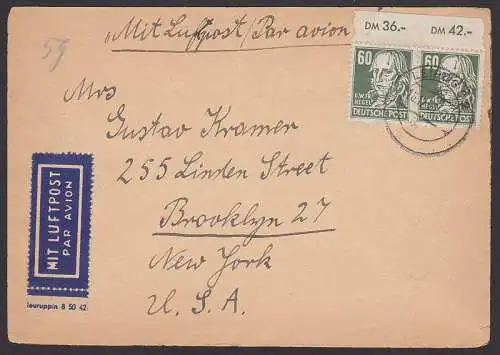 DM 36.- DM 42.-
"Mit Luftpost / Par avion
59
60 60
G.W.FR. HEGEL
DEUTSCHE POST DEUTSCHE POST
LEIPZIG
Mrs
Gustav Kramer
255 Linden Street
Brooklyn 27
New York
U. S. A.
MIT LUFTPOST
PAR AVION
euruppin 8 50 42